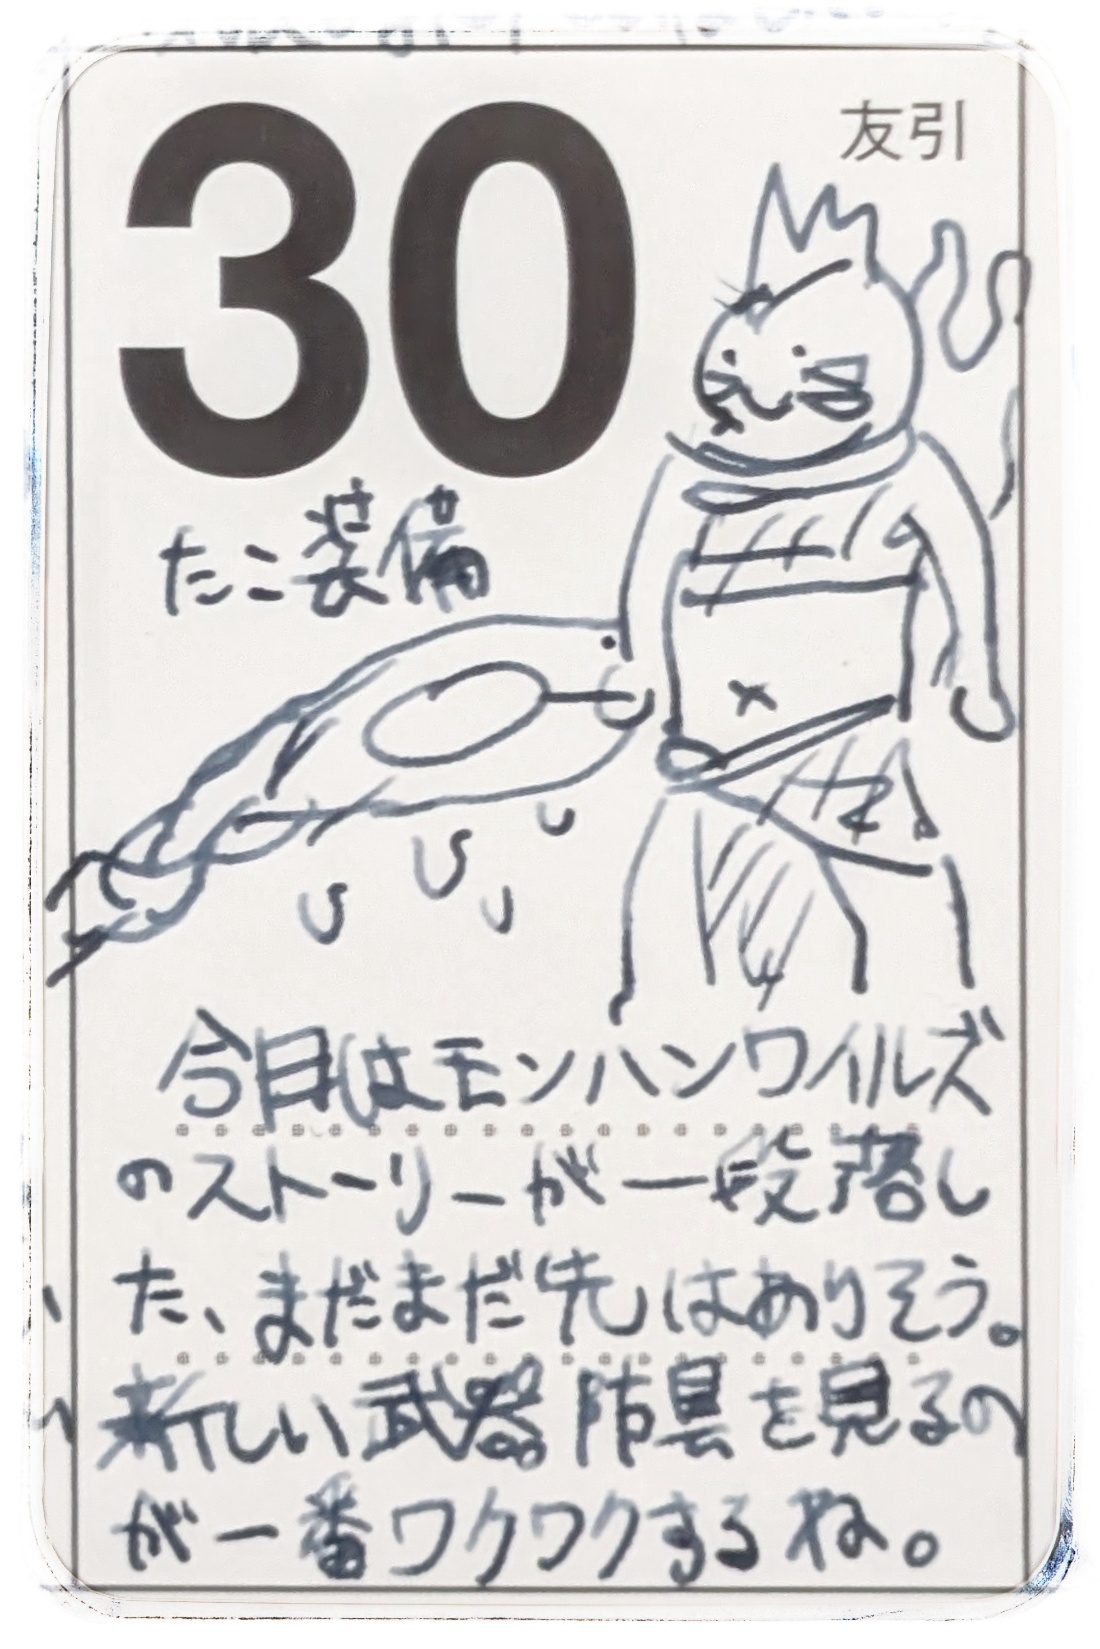 30
友引
たこ装備
今日はモンハンワイルズ
のストーリーが一段落し
た、まだまだ先はありそう。
新しい武器防具を見るの
が一番ワクワクするね。